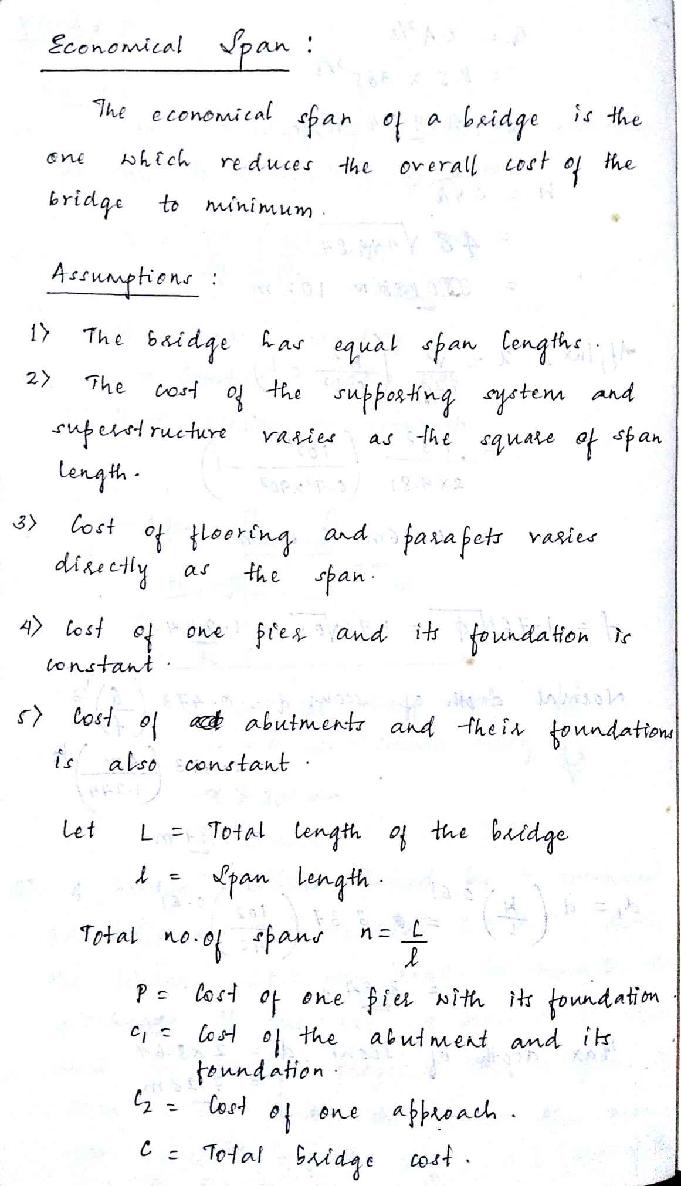 Economical Span :
The economical span of a bridge is the
one which reduces the overall cost of the
bridge to minimum.
Assumptions :
1) The bridge has equal span lengths.
2) The cost of the supporting system and
superstructure varies as the square of span
length.
3) Cost of flooring and parapets varies
directly as the span.
4) Cost of one pier and its foundation is
constant.
5) Cost of abutments and their foundations
is also constant.
Let L = Total length of the bridge
l = Span length.
Total no. of spans n = L/l
P = Cost of one pier with its foundation.
C₁ = Cost of the abutment and its
foundation.
C₂ = Cost of one approach.
C = Total bridge cost.